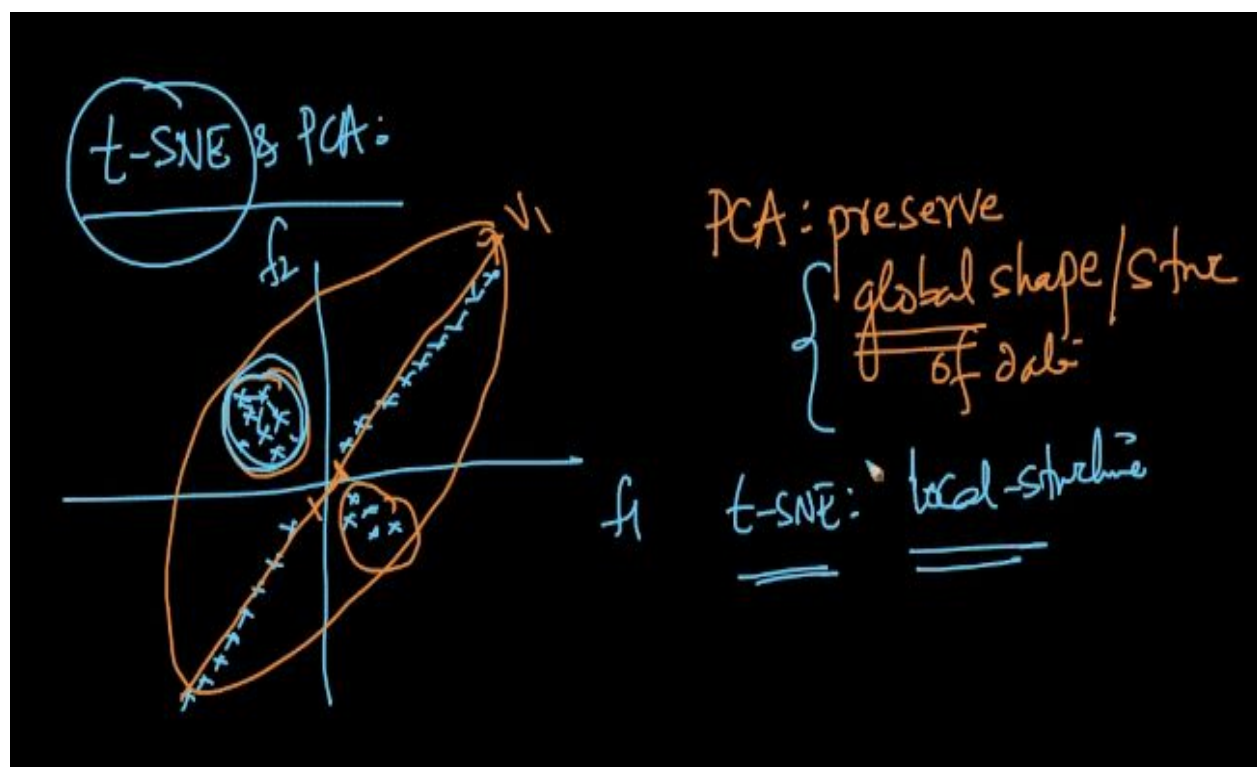 t-SNE & PCA:
f2
V1
f1
PCA: preserve
global shape/struc
of data
t-SNE: local-structure